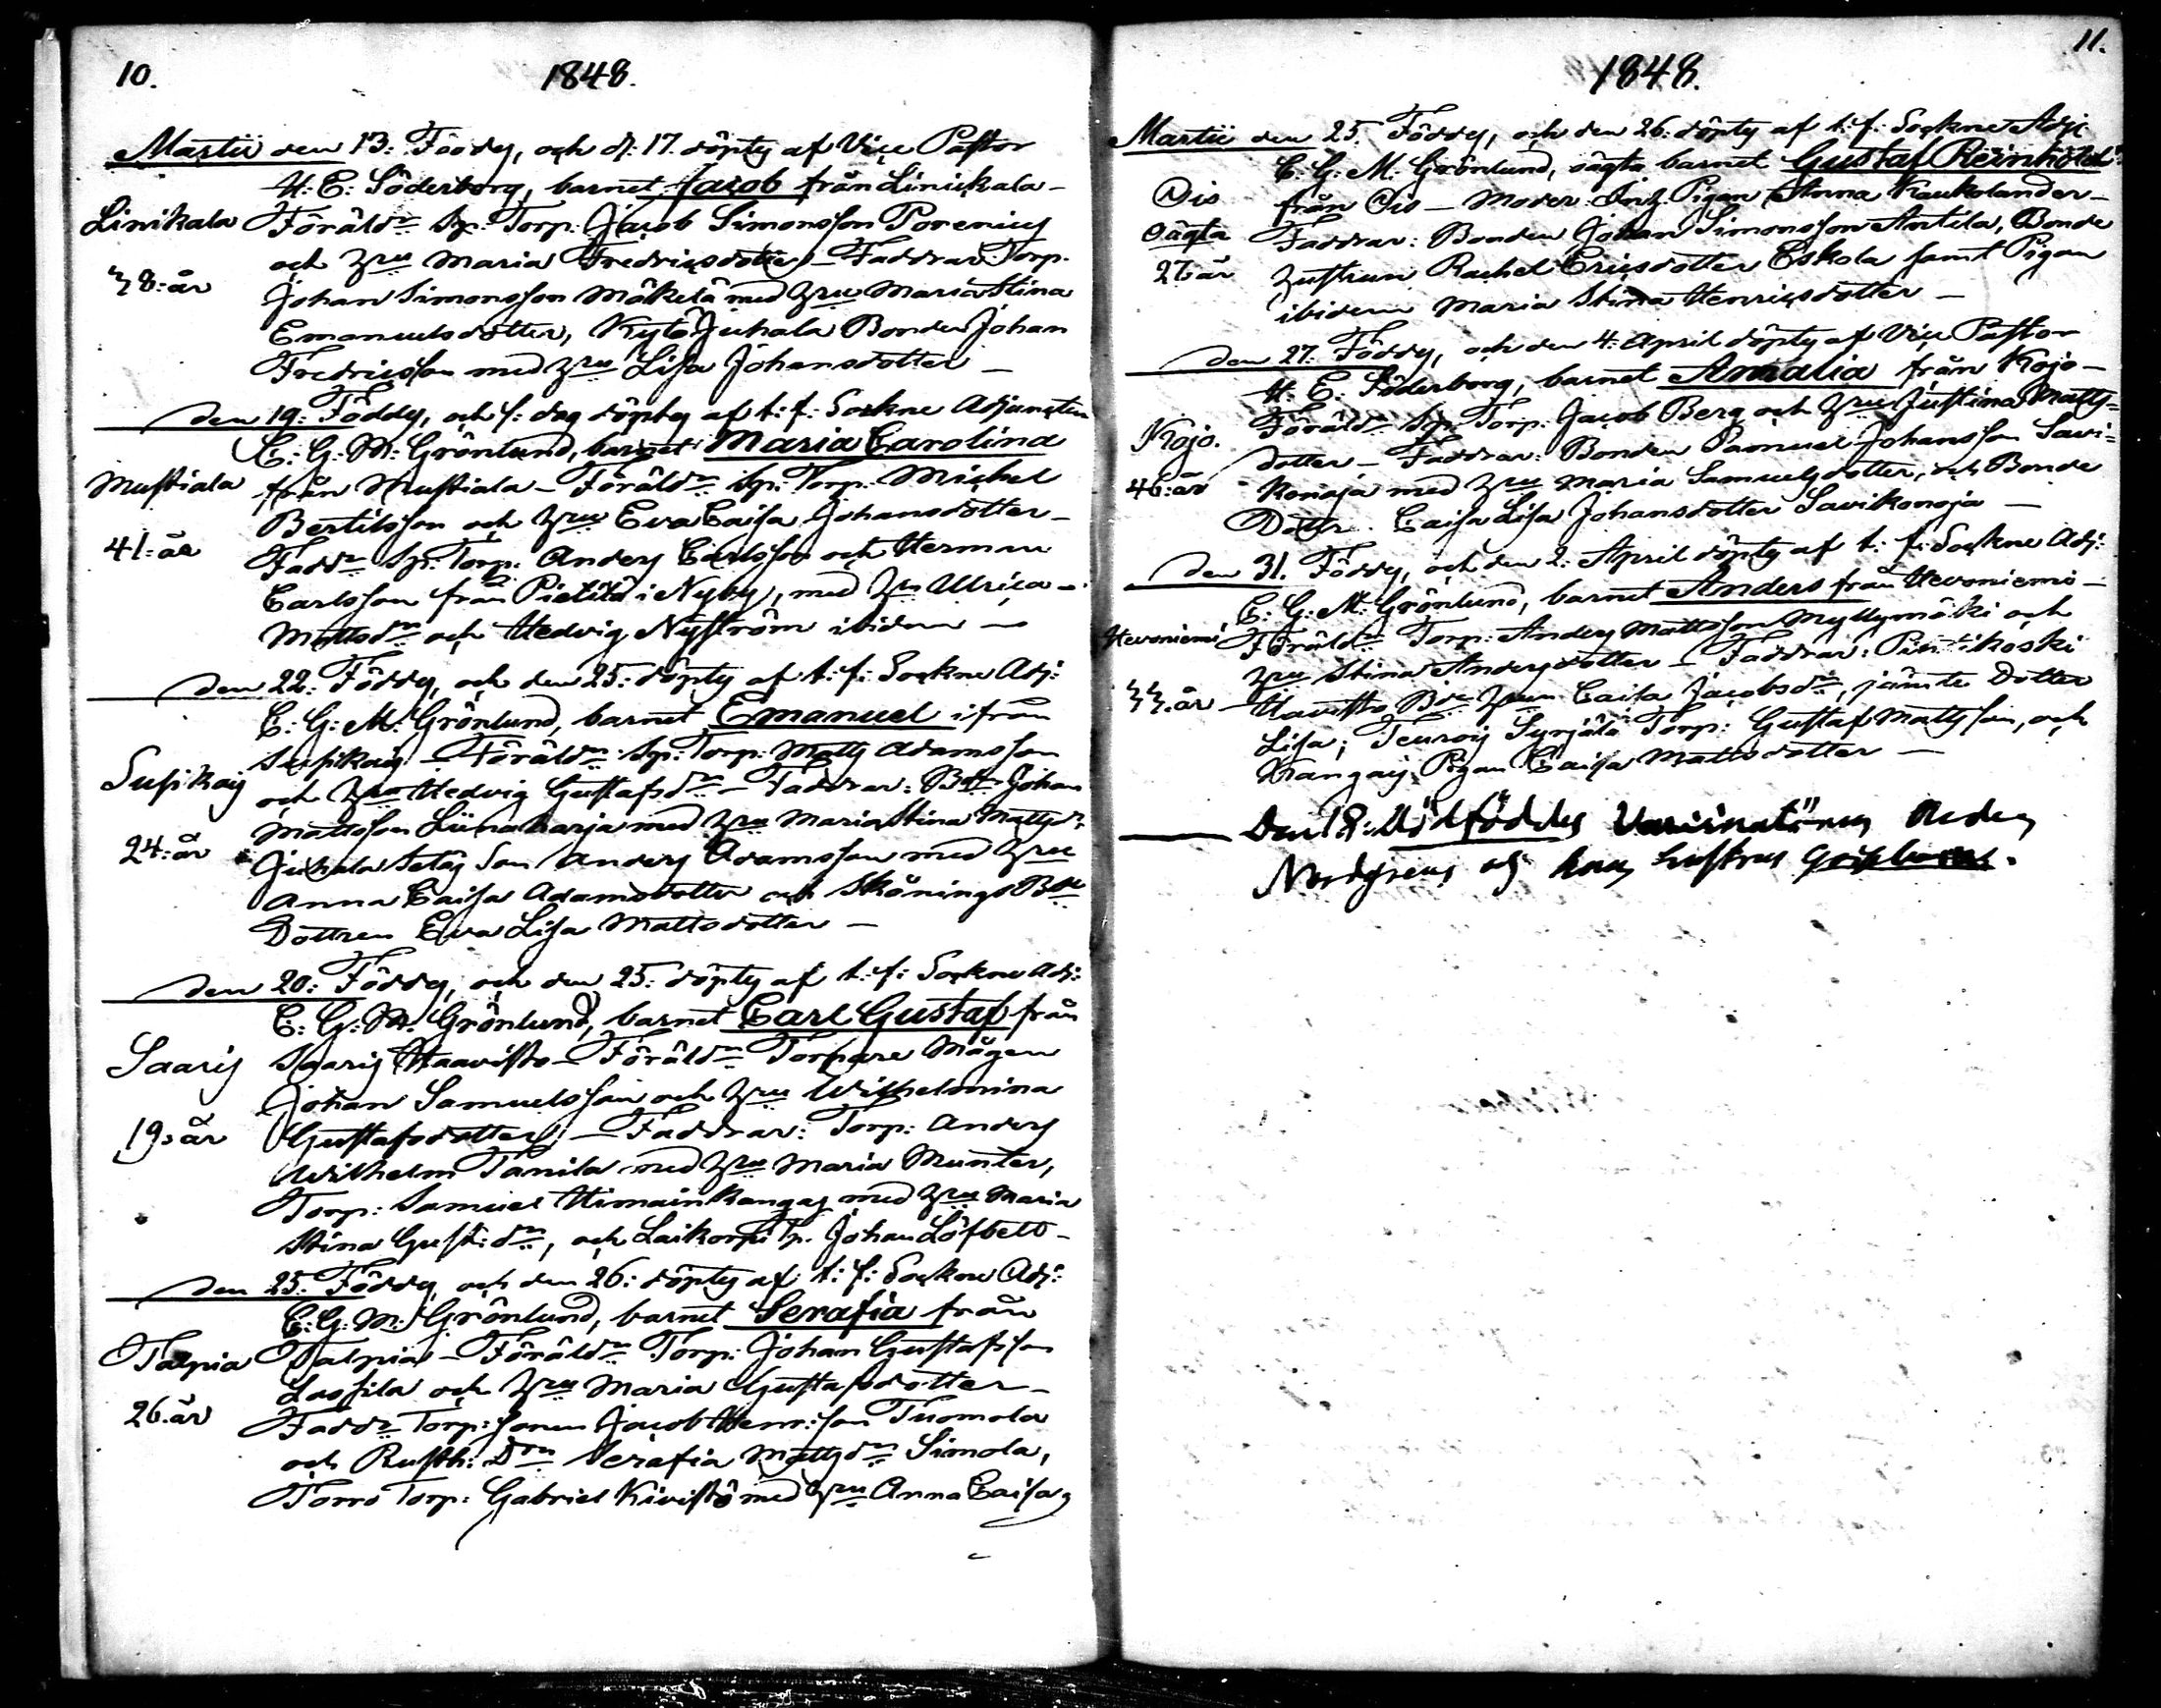 10.
1848.
Martii den 13: Föddes, och d: 17. döptes af Vice Pastor
H: E: Söderborg, barnet Jacob från Linikkala –
Linikala
Föräldr. Sp: Torp: Jacob Simonsson Porenius
och Hru Maria Fredricsdotter – Faddrar: Torp.
38: år
Johan Simonsson Mäkelä med Hru Maria Stina
Emanuelsdotter, Kytö Juhala Bonden Johan
Fredricsson med Hru Lisa Johansdotter –
den 19: Föddes, och s: dag döptes af t: f: Sockne Adjuncten
C: G: M: Grönlund, barnet Maria Carolina
Mustiala
från Mustiala – Föräldr. Sp: Torp. Michel
Bertilsson och Hru Eva Caisa Johansdotter –
41: år
Faddr. Sp: Torp: Anders Carlsson och Herman
Carlsson från Pietilä i Nyby, med Hr. Ulrica
Mattsdr. och Hedvig Nyström ibidem –
den 22: Föddes, och den 25: döptes af t: f: Sockne Adj:
C: G: M: Grönlund, barnet Emanuel ifrån
Susikas
Susikas – Föräldr. Sp: Torp: Matts Adamsson
och Hru Hedvig Gustafsdr. – Faddrar: Bdn Johan
Mattsson Liinaharja med Hru Maria Stina Mattsdr.
24: år
Juhala Son Anders Adamsson med Hru
Anna Caisa Adamsdotter och Skönings Bde
Dottren Eva Lisa Mattsdotter –
den 20: Föddes, och den 25: döptes af t: f: Sockne Adj:
C: G: M: Grönlund, barnet Carl Gustaf från
Saaris
Saaris Haavisto – Föräldr. Torpare Mågen
Johan Samuelsson och Hru Wilhelmina
19: år
Gustafsdotter – Faddrar: Torp: Anders
Wilhelm Tanila med Hru Maria Munter,
Torp: Samuel Himainkangas med Hru Maria
Stina Gust: dr., och Laikorpi Tp. Johan Löfbeto –
den 25: Föddes, och den 26: döptes af t: f: Sockne Adj:
C: G: M: Grönlund, barnet Serafia från
Talpia
Talpia – Föräldr. Torp: Johan Gustafsson
Lassila och Hru Maria Gustafsdotter –
26. år
Faddr. Torp: sonen Jacob Henr: son Tuomola
och Rusth: Dtr Serafia Mattsdr. Simola,
Torro Torp: Gabriel Kivistö med Hru Anna Caisa
11.
1848.
Martii den 25. Föddes, och den 26. döptes af t: f: Sockne Adj:
C: G: M: Grönlund, oägta barnet Gustaf Reinhold
Ojs
från Ojs – Moder: Inh. Pigan Anna Kaukolander –
Oägta
Faddrar: Bonden Johan Simonsson Antila, Bonde
27. år
hustrun Rachel Ericsdotter Eskola samt Pigan
ibidem Maria Stina Henricsdotter –
den 27. Föddes, och den 4. April döptes af Vice Pastor
H: E: Söderborg, barnet Amalia från Kojo –
Kojo.
Föräldr. Sp: Torp. Jacob Berg och Hru Justina Matts=
dotter – Faddrar: Bonden Samuel Johansson Savi=
46: år
konoja med Hru Maria Samuelsdotter, och Bonde
Dottr. Caisa Lisa Johansdotter Savikonoja –
den 31. Föddes, och den 2: April döptes af t: f: Sockne Adj:
C: G: M: Grönlund, barnet Anders från Hevoniemi –
Hevoniemi
Föräldr. Torp: Anders Mattsson Myllymäki och
Hru Stina Andersdotter – Faddrar: Pentikoski
33. år
Haavisto Bde Hrun Caisa Jacobsdr., jämte Dotter
Lisa; Teurois Syrjälä Torp: Gustaf Mattsson, och
Kangais Pigan Caisa Mattsdotter –
Den 18: Dödföddes
Nordgrens och hans hustrus